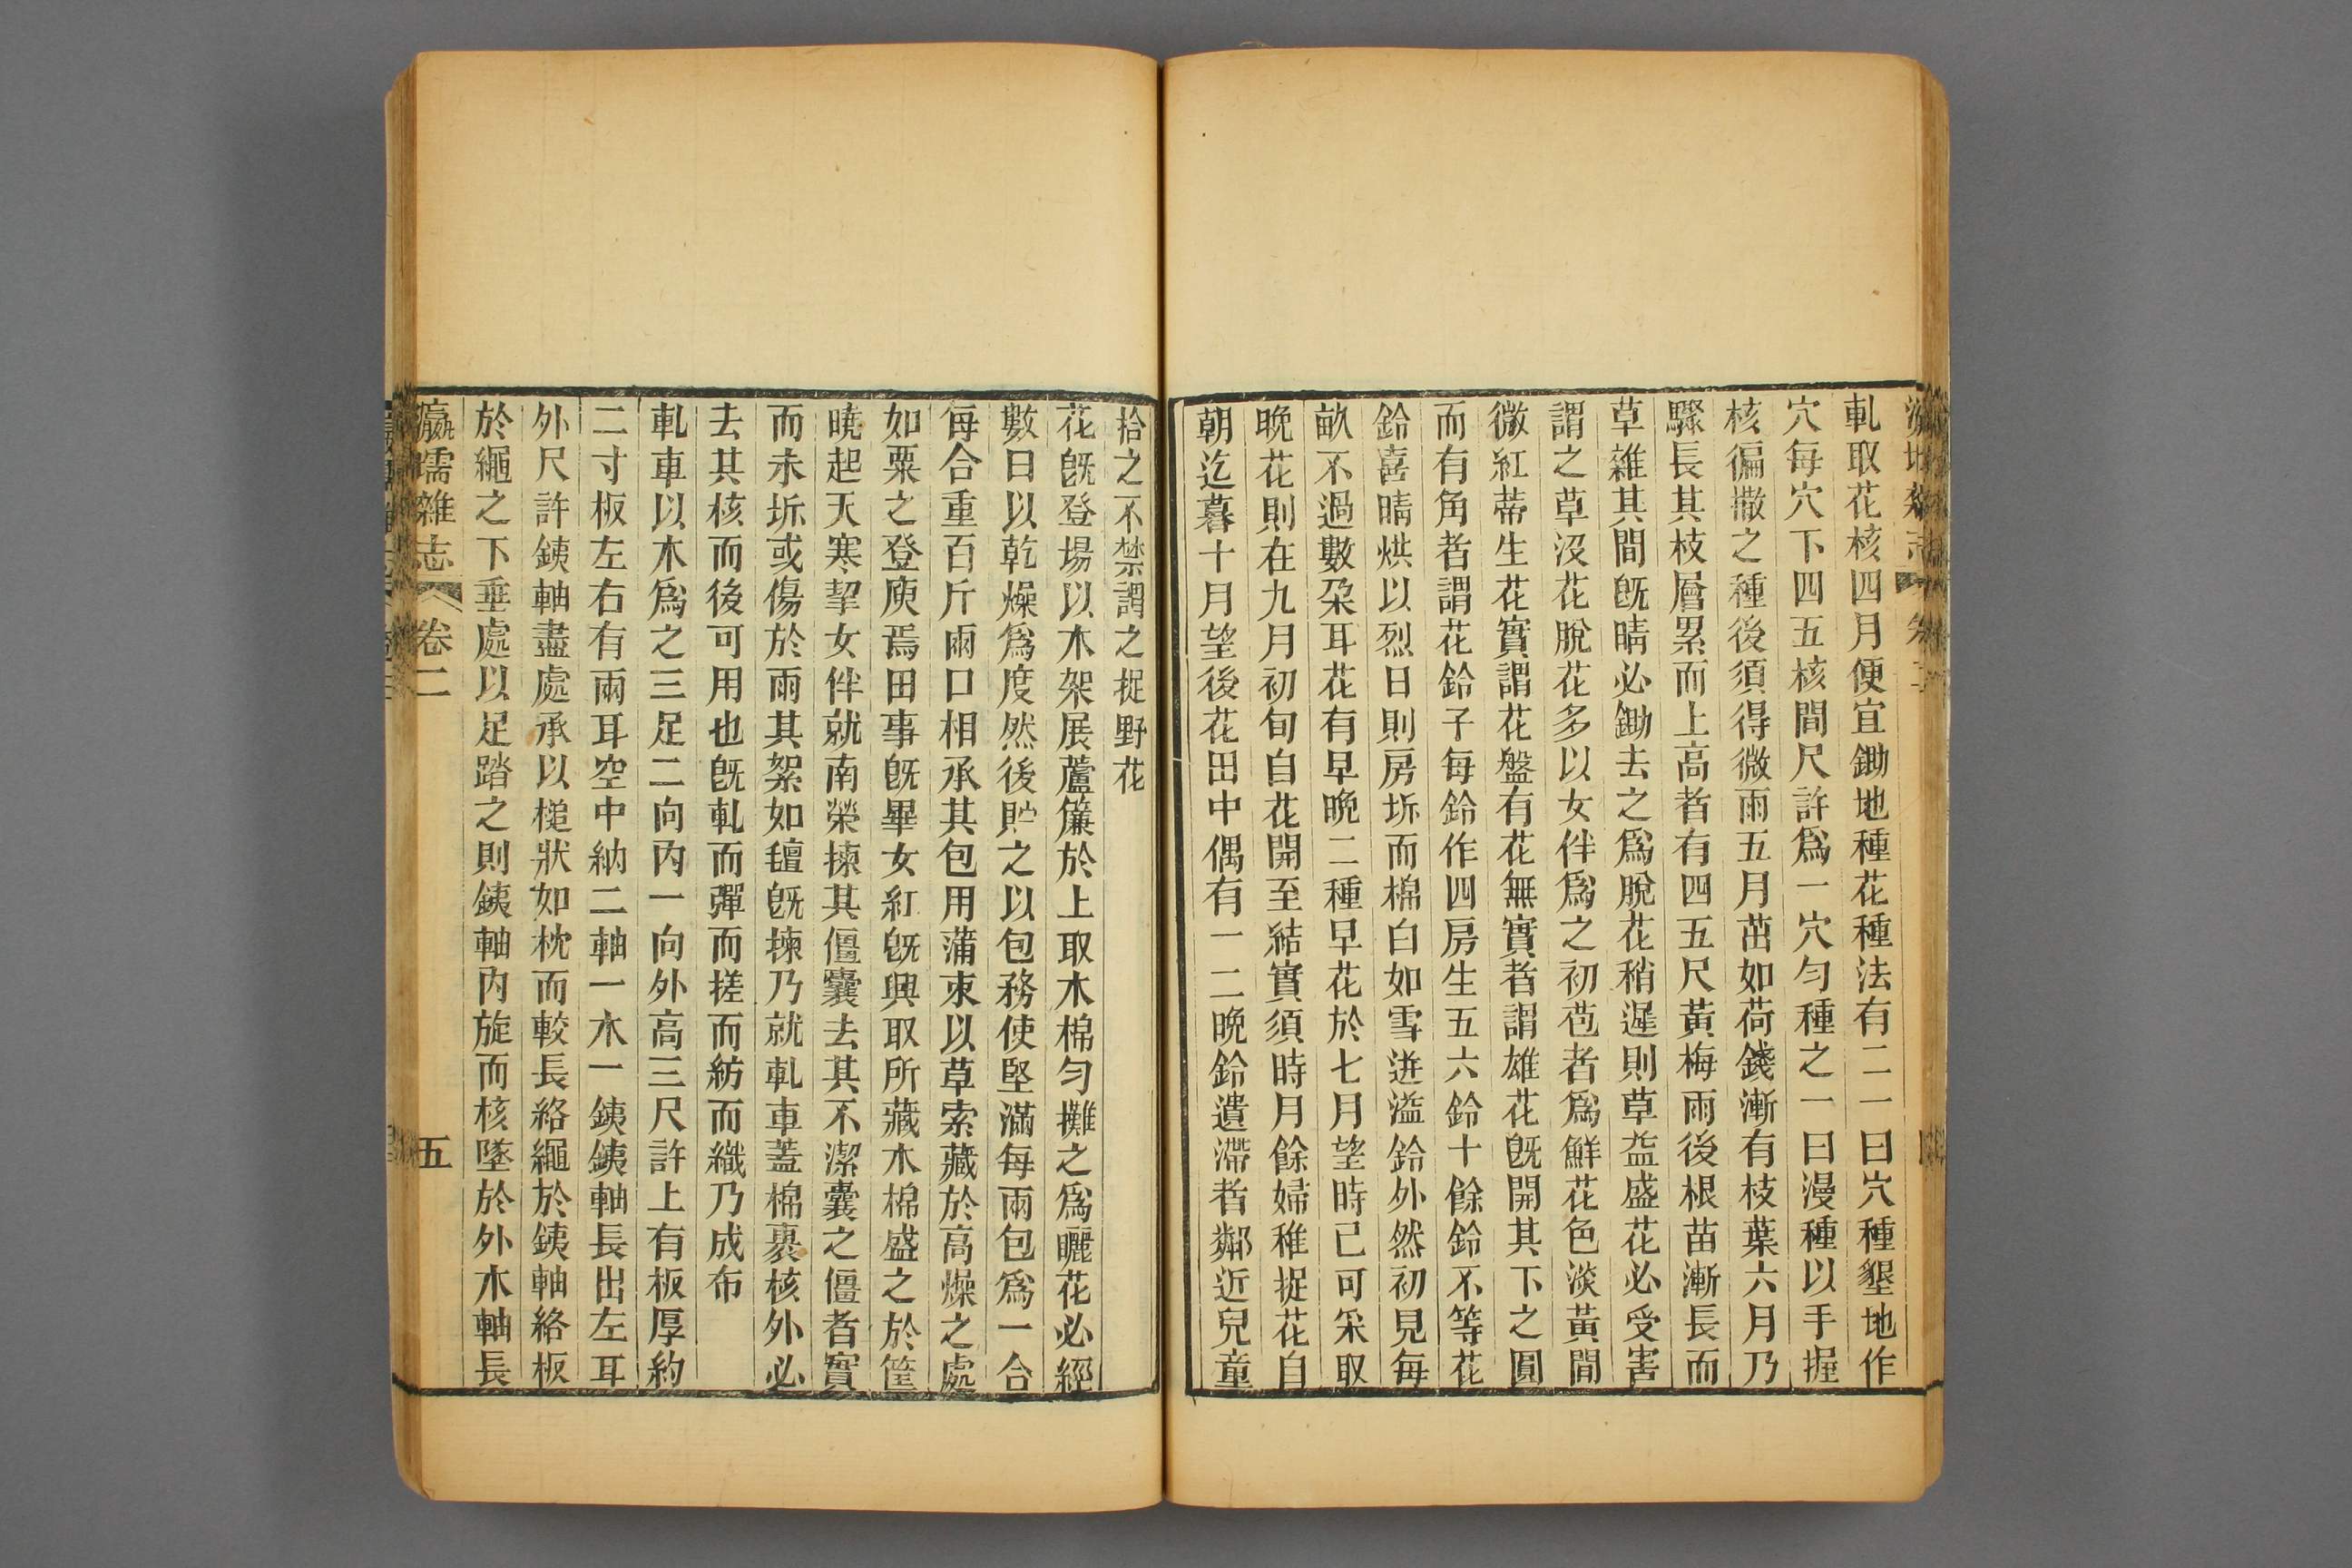 軋取花核四月便宜鋤地種花種法有二一曰穴種墾地作
穴每穴下四五核間尺許爲一穴勻種之一曰漫種以手握
核徧撒之種後須得微雨五月茁如荷錢漸有枝葉六月乃
驟長其枝層累而上高者有四五尺黃梅雨後根苗漸長而
草雜其間旣晴必鋤去之爲脫花稍遲則草益盛花必受害
謂之草沒花脫花多以女伴爲之初苞者爲鮮花色淡黃間
微紅蒂生花實謂花盤有花無實者謂雄花旣開其下之圓
而有角者謂花鈴子每鈴作四房生五六鈴十餘鈴不等花
鈴喜晴烘以烈日則房坼而棉白如雪迸溢鈴外然初見每
畝不過數朶耳花有早晚二種早花於七月望時已可采取
晚花則在九月初旬自花開至結實須時月餘婦稚捉花自
朝迄暮十月望後花田中偶有一二晚鈴遺滯者鄰近兒童
拾之不禁謂之捉野花
花旣登場以木架展蘆簾於上取木棉勻攤之爲曬花必經
數日以乾燥爲度然後貯之以包務使堅滿每兩包爲一合
每合重百斤兩口相承其包用蒲朿以草索藏於高燥之處
如粟之登庾焉田事旣畢女紅旣興取所藏木棉盛之於筐
曉起天寒挈女伴就南榮揀其僵囊去其不潔囊之僵者實
而未坼或傷於雨其絮如氊旣揀乃就軋車蓋棉裹核外必
去其核而後可用也旣軋而彈而搓而紡而織乃成布
軋車以木爲之三足二向內一向外高三尺許上有板厚約
二寸板左右有兩耳空中納二軸一木一銕銕軸長出左耳
外尺許銕軸盡處承以槌狀如枕而較長絡繩於銕軸絡板
於繩之下垂處以足踏之則銕軸內旋而核墜於外木軸長
瀛壖雜志 卷二 五